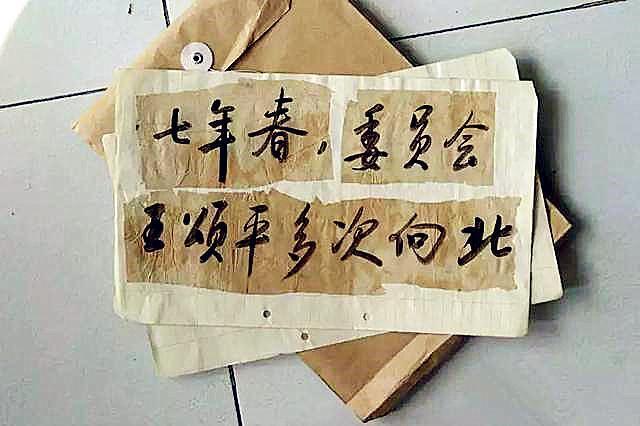 七年春，委员会
王颂平多次向北